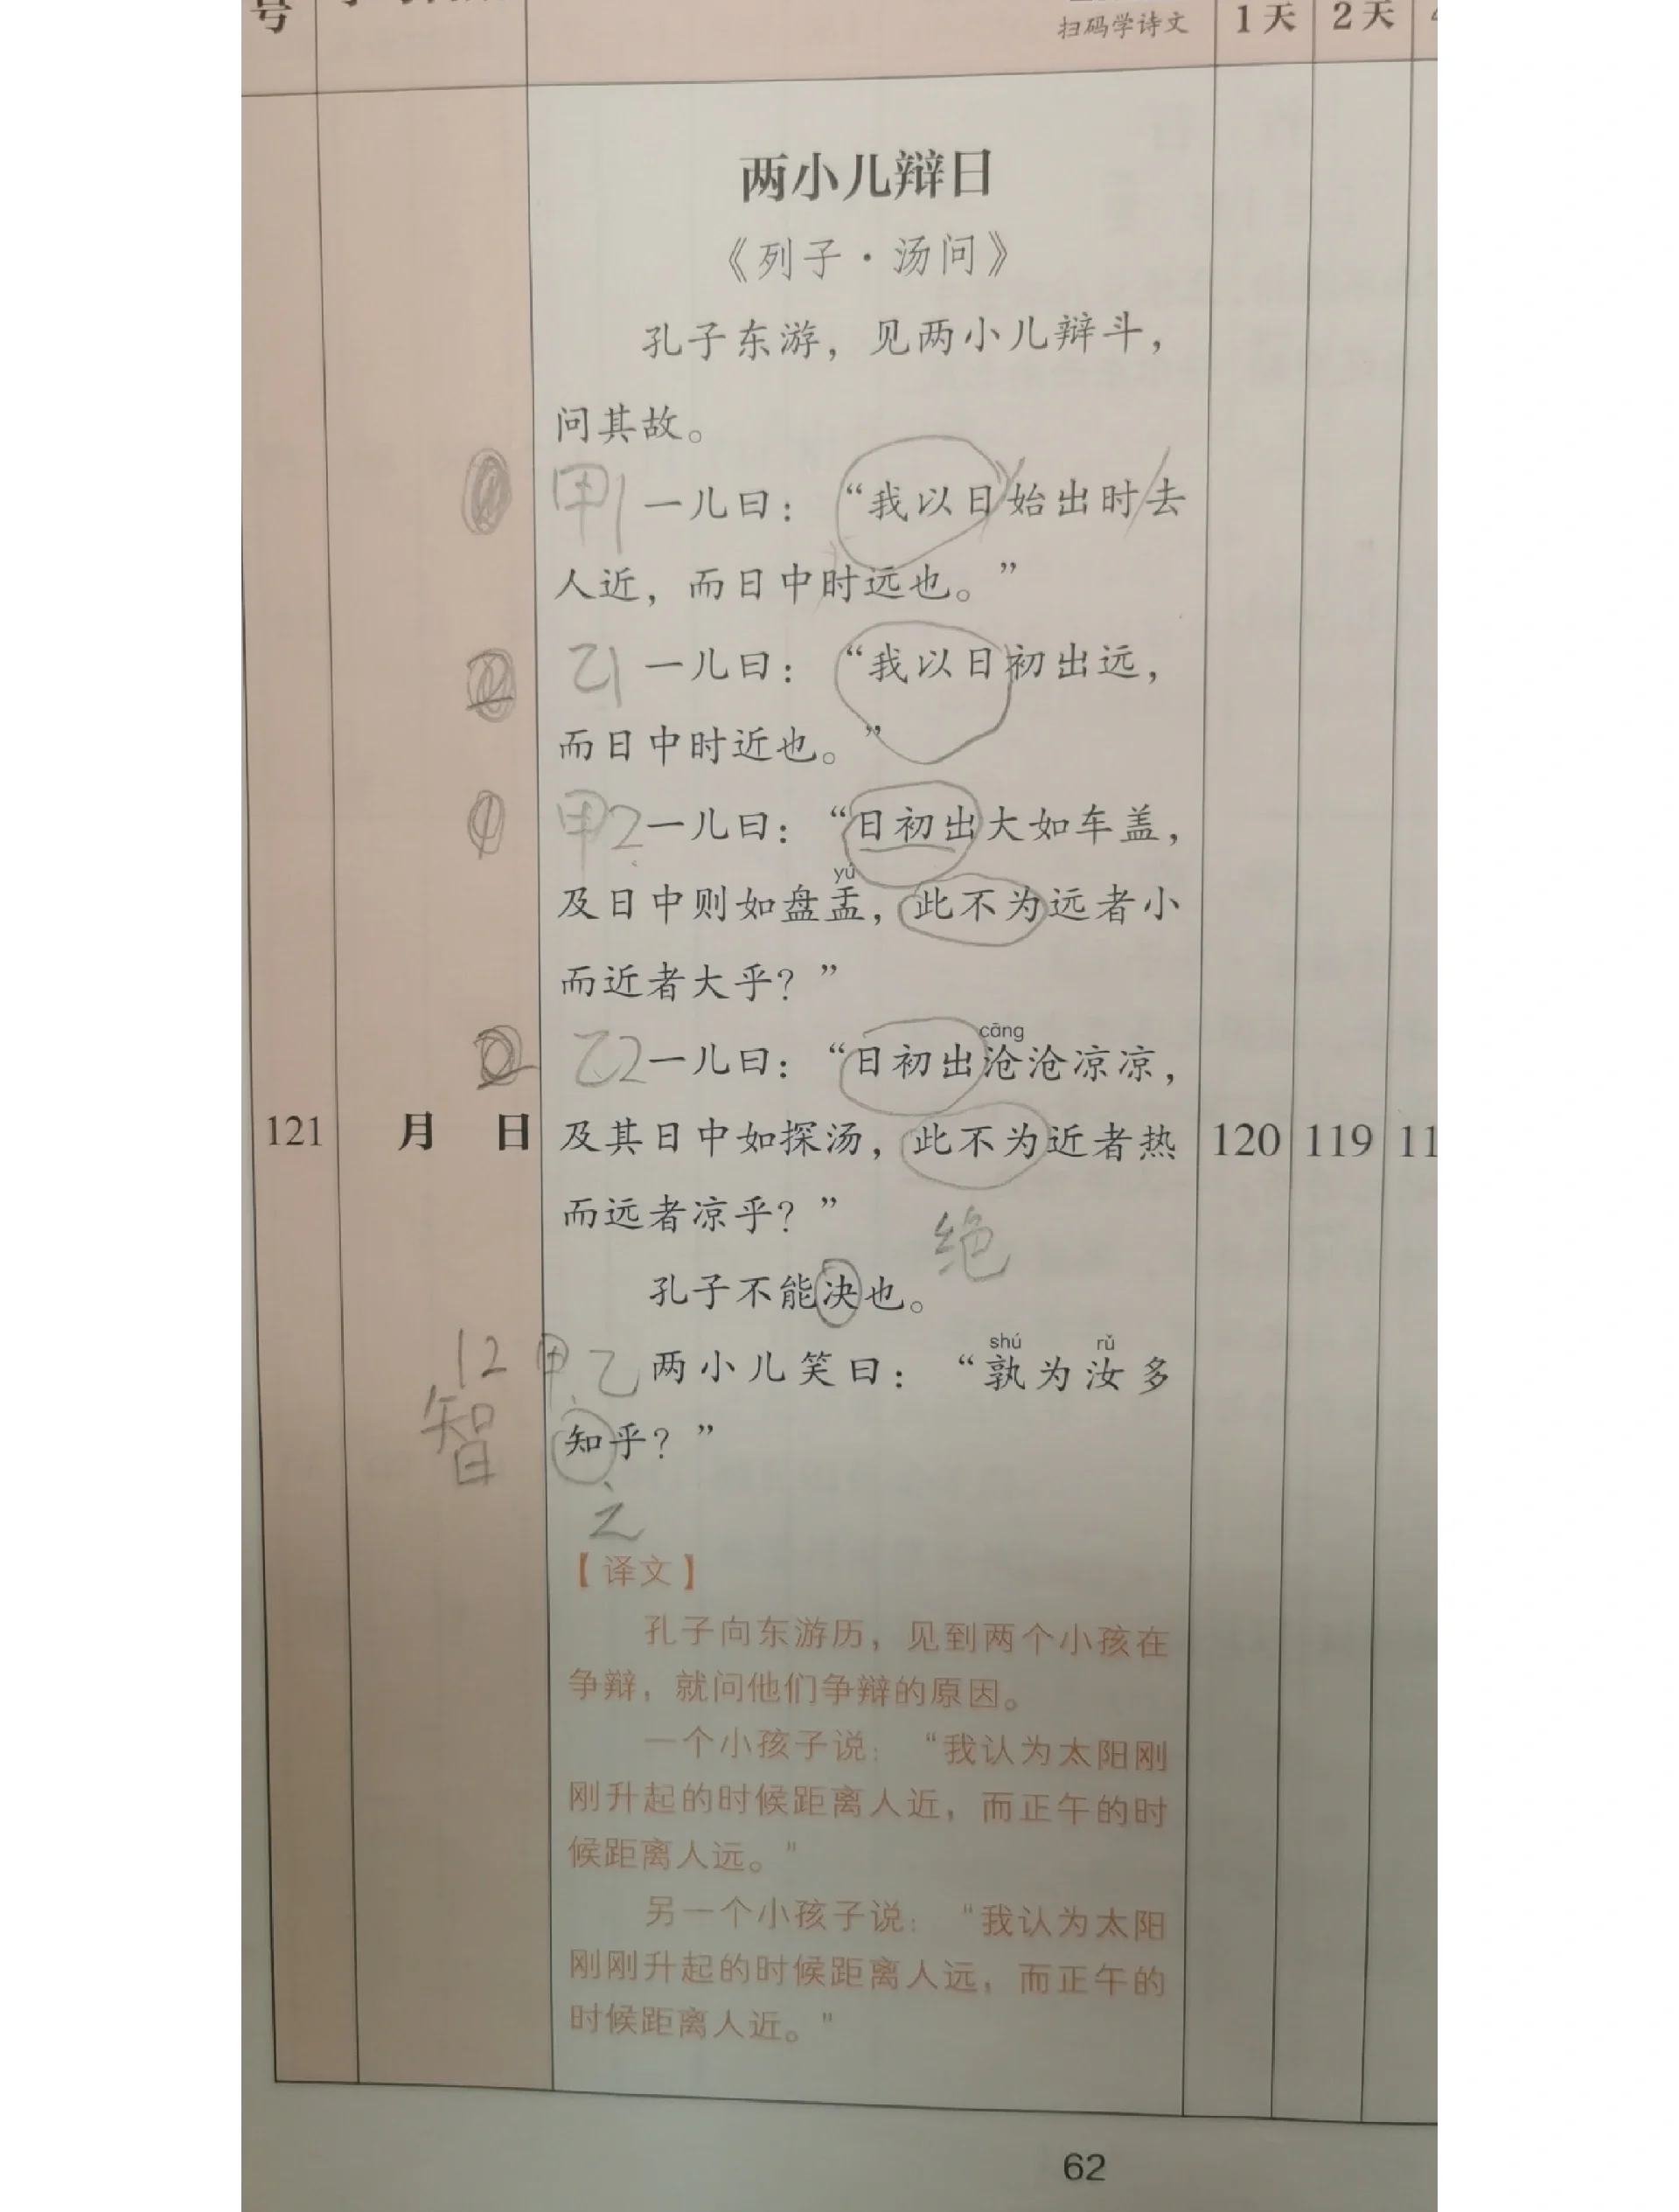 号
扫码学诗文
1天
2天
两小儿辩日
《列子·汤问》
孔子东游，见两小儿辩斗，
问其故。
甲1 一儿曰：“我以日始出时去
人近，而日中时远也。”
乙1 一儿曰：“我以日初出远，
而日中时近也。”
甲2 一儿曰：“日初出大如车盖，
yú
及日中则如盘盂，此不为远者小
而近者大乎？”
cāng
乙2 一儿曰：“日初出沧沧凉凉，
121 月 日 及其日中如探汤，此不为近者热 120 119 11
而远者凉乎？”
绝
孔子不能决也。
shú rǔ
12 甲、乙 两小儿笑曰：“孰为汝多
智 知乎？”
【译文】
孔子向东游历，见到两个小孩在
争辩，就问他们争辩的原因。
一个小孩子说：“我认为太阳刚
刚升起的时候距离人近，而正午的时
候距离人远。”
另一个小孩子说：“我认为太阳
刚刚升起的时候距离人远，而正午的
时候距离人近。”
62